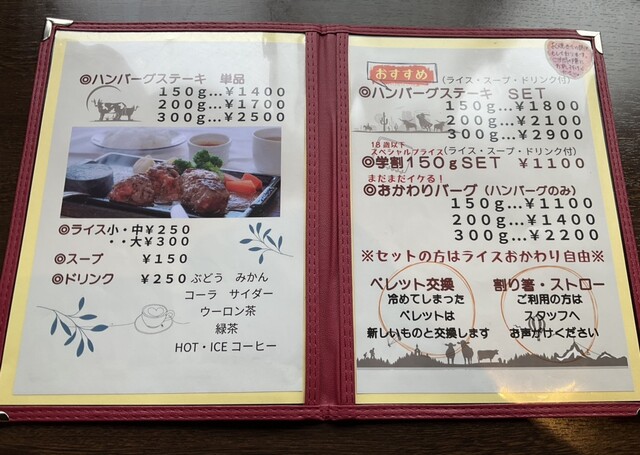 ◎ハンバーグステーキ 単品
150g...¥1400
200g...¥1700
300g...¥2500
◎ライス小・中¥250
・・大¥300
◎スープ ¥150
◎ドリンク ¥250
ぶどう みかん
コーラ サイダー
ウーロン茶
緑茶
HOT・ICEコーヒー
おすすめ (ライス・スープ・ドリンク付)
◎ハンバーグステーキ SET
150g...¥1800
200g...¥2100
300g...¥2900
18歳以下
スペシャルプライス(ライス・スープ・ドリンク付)
◎学割150gSET ¥1100
まだまだイケる!
◎おかわりバーグ(ハンバーグのみ)
150g...¥1100
200g...¥1400
300g...¥2200
※セットの方はライスおかわり自由※
ペレット交換
冷めてしまった
ペレットは
新しいものと交換します
割り箸・ストロー
ご利用の方は
スタッフへ
お声がけください